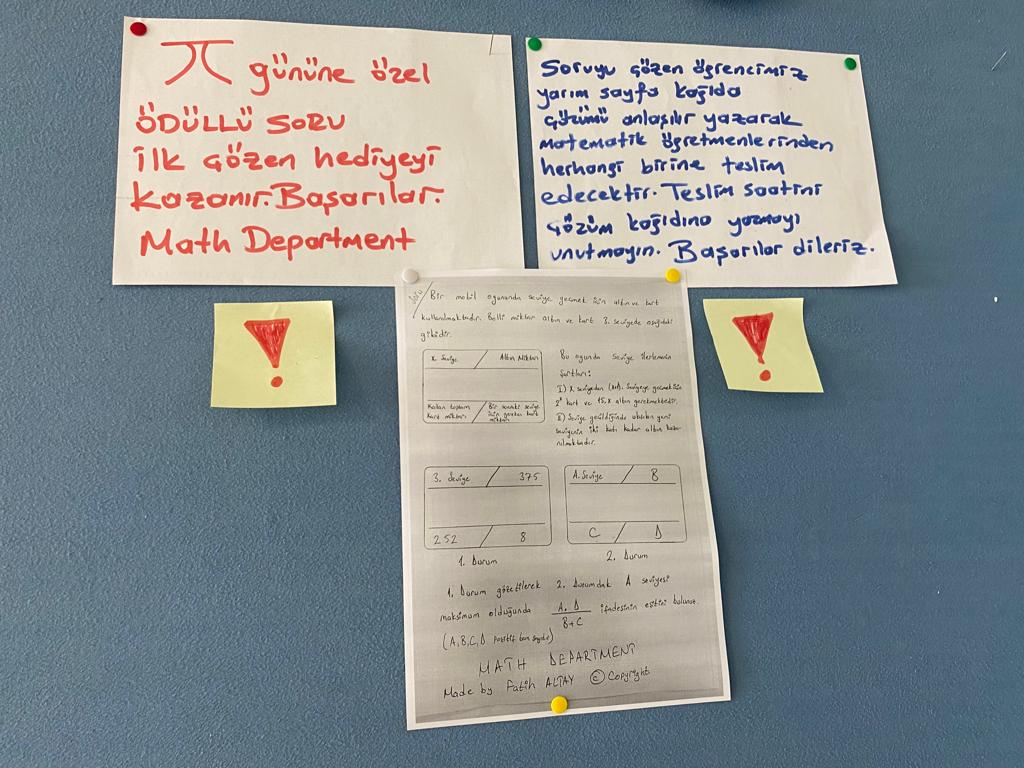 π gününe özel
ÖDÜLLÜ SORU
ilk çözen hediyeyi
kazanır. Başarılar.
Math Department
Soruyu çözen öğrencimiz
yarım sayfa kağıda
çözümü anlaşılır yazarak
matematik öğretmenlerinden
herhangi birine teslim
edecektir. Teslim saatini
çözüm kağıdına yazmayı
unutmayın. Başarılar dileriz.
!
!
Soru/ Bir mobil oyununda seviye geçmek için altın ve kart
kullanılmaktadır. Belli miktar altın ve kart 3. seviyede aşağıdaki
gibidir.
X. Seviye / Altın Miktarı
Kalan toplam kart miktarı / Bir sonraki seviye
için gereken kart
miktarı
Bu oyunda seviye ilerlemenin
şartları:
I) X seviyeden (x+1). Seviyeye geçmek için
2ˣ kart ve 15.x altın gerekmektedir.
II) Seviye geçildiğinde ulaşılan yeni
seviyenin iki katı kadar altın kaza-
nılmaktadır.
3. Seviye / 375
252 / 8
1. Durum
A. Seviye / B
C / D
2. Durum
1. Durum gözetilerek 2. Durumdaki A seviyesi
maksimum olduğunda A.D / B+C ifadesinin eşitini bulunuz.
(A,B,C,D pozitif tam sayıdır)
MATH DEPARTMENT
Made by Fatih ALTAY © Copyright